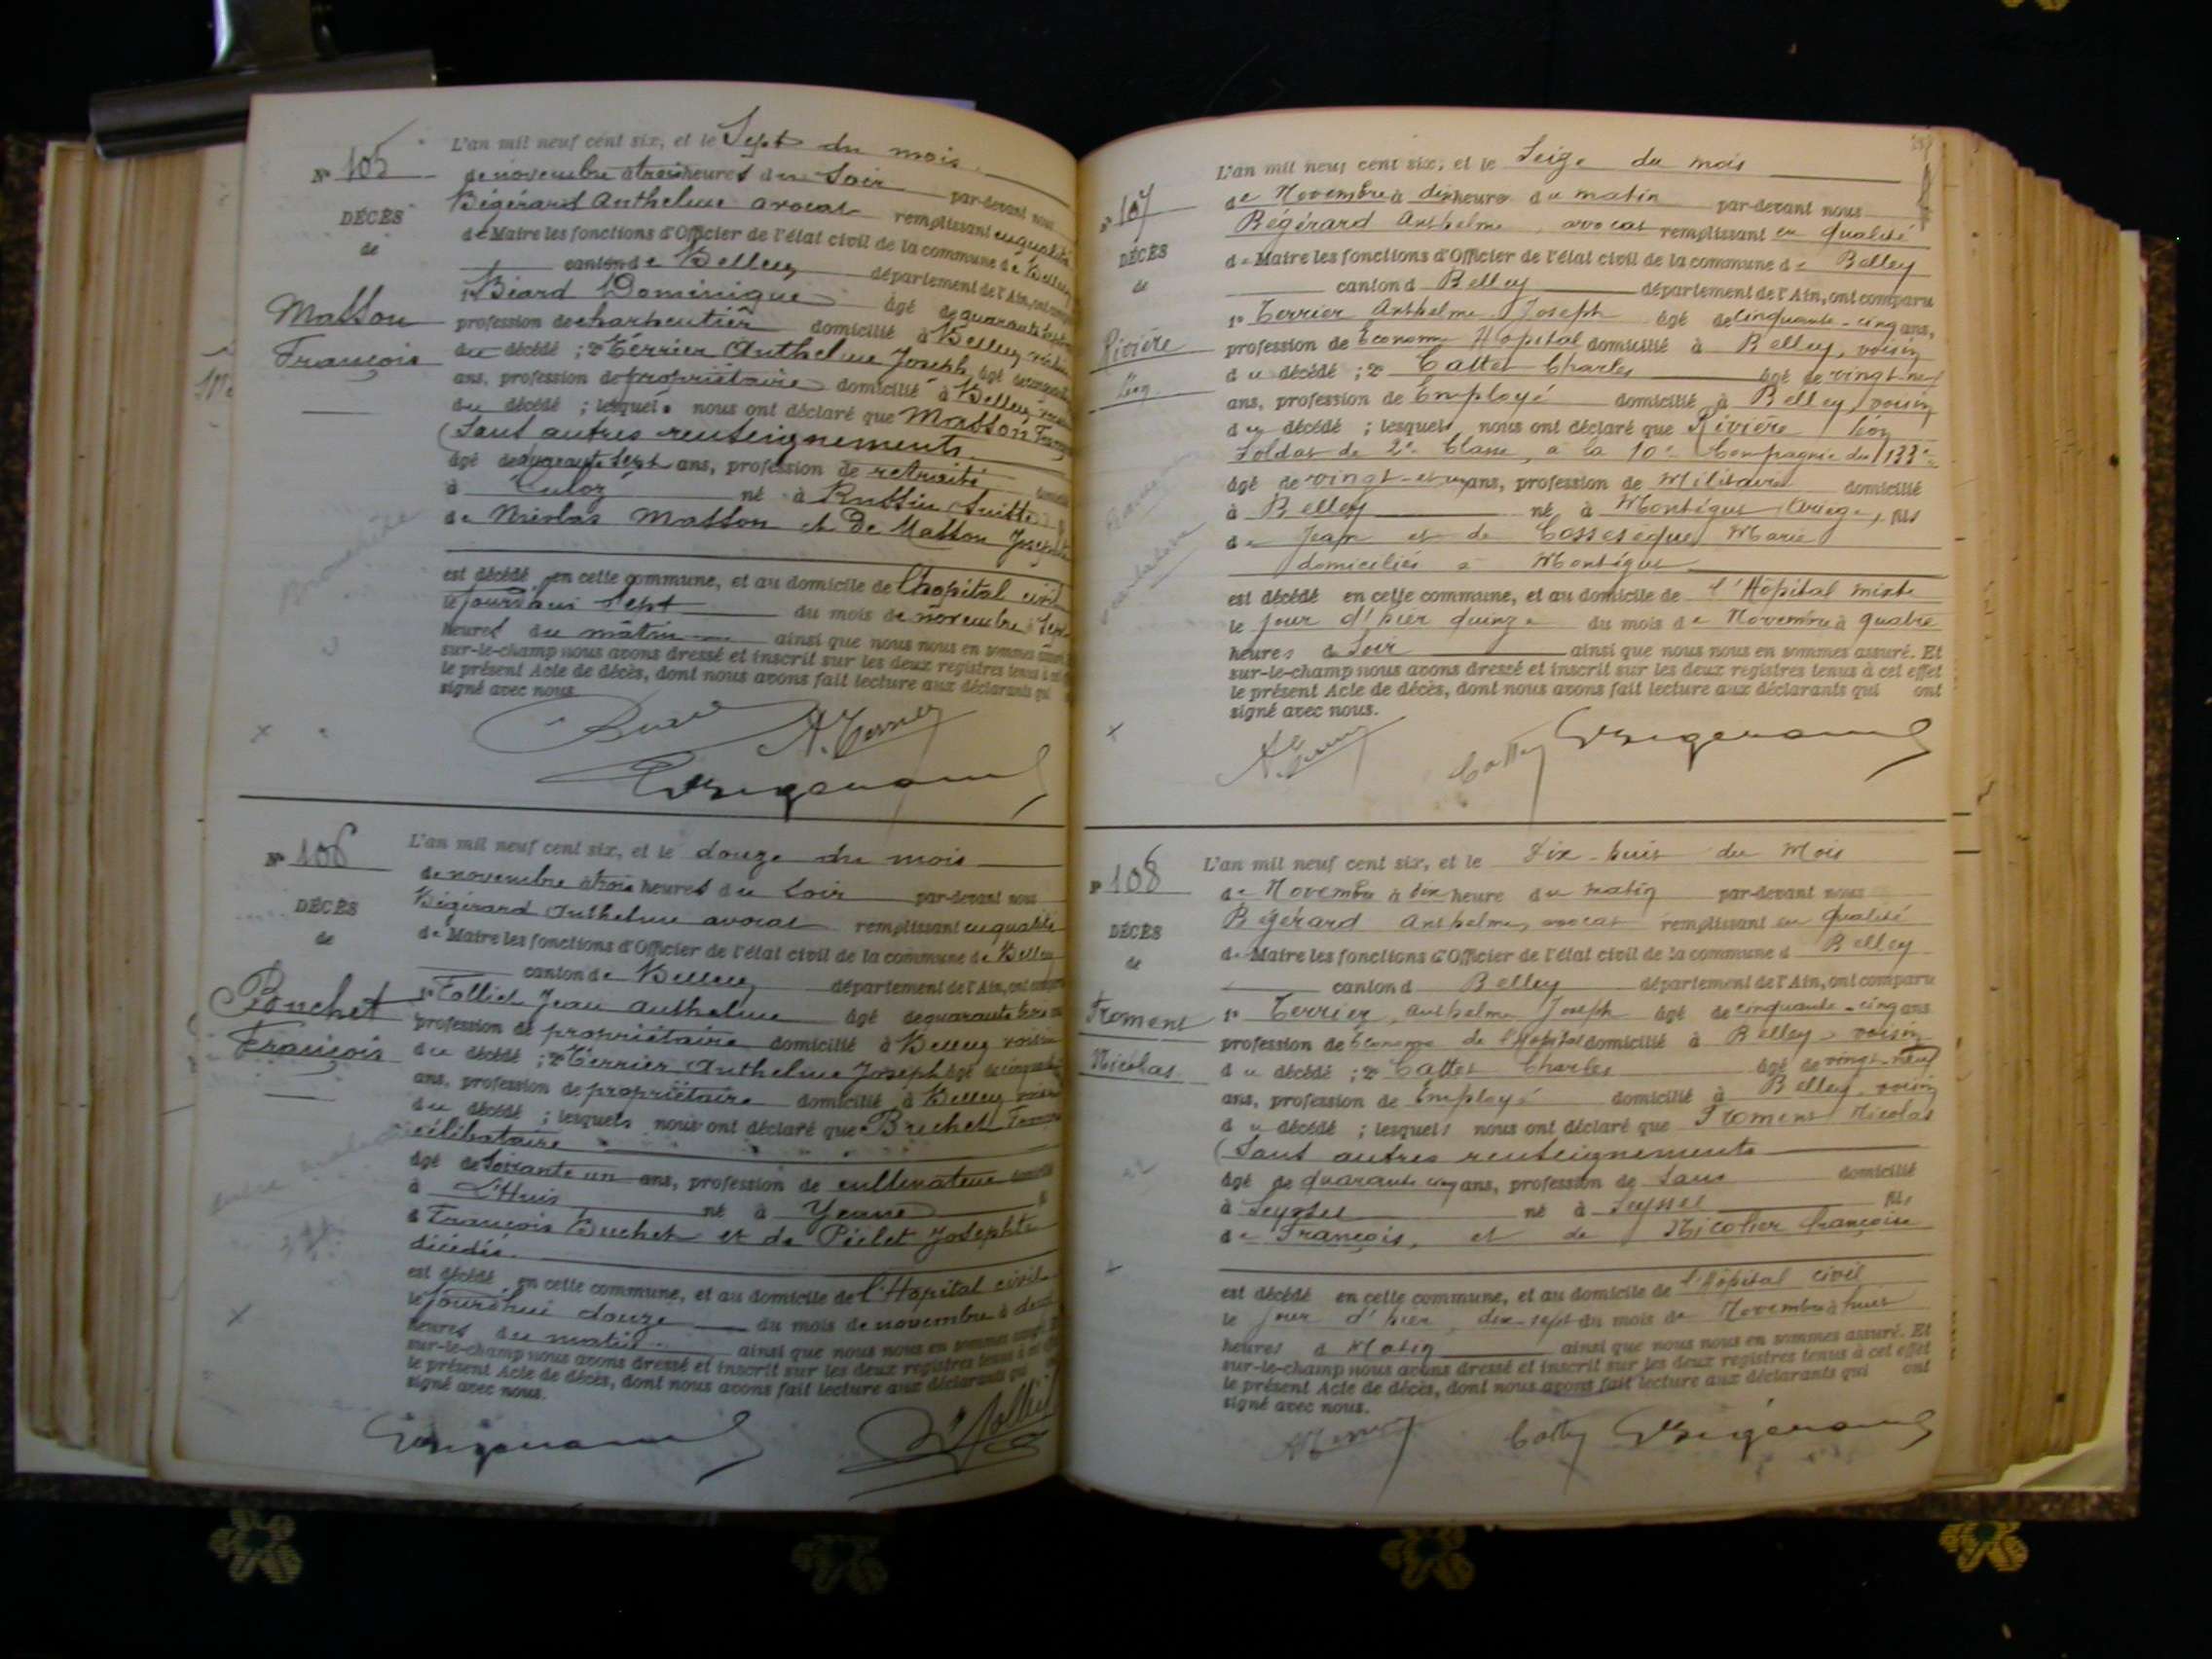 L'an mil neuf cent six, et le Sept du mois
N° 105
de novembre à trois heures du Soir par-devant nous
Bégérard Anthelme avocat remplissant en qualité
DÉCÈS
de Maire les fonctions d'Officier de l'état civil de la commune de Belley
de
canton de Belley département de l'Ain, ont comparu
1° Béard Dominique âgé de quarante
Masson
profession de charpentier domicilié à Belley voisin
François
du décédé ; 2° Terrier Anthelme Joseph âgé de
ans, profession de propriétaire domicilié à Belley voisin
du décédé ; lesquels nous ont déclaré que Masson François
(Sans autres renseignements
âgé de quarante sept ans, profession de retraité domicilié
à Culoz né à Russin Suisse
de Nicolas Masson et de Masson Josephte
Bronchite
est décédé en cette commune, et au domicile de l'hopital civil
le jourd'hui Sept du mois de novembre à Sept
heures du matin ainsi que nous nous en sommes assuré. Et
sur-le-champ nous avons dressé et inscrit sur les deux registres tenus à cet effet
le présent Acte de décès, dont nous avons fait lecture aux déclarants qui
signé avec nous.
A. Terrier
Bégérard
L'an mil neuf cent six, et le douze du mois
N° 106
de novembre à trois heures du Soir par-devant nous
Bégérard Anthelme avocat remplissant en qualité
DÉCÈS
de Maire les fonctions d'Officier de l'état civil de la commune de Belley
de
canton de Belley département de l'Ain, ont comparu
1° Folliet Jean Anthelme âgé de quarante trois ans
Ponchet
profession de propriétaire domicilié à Belley voisin
François
du décédé ; 2° Terrier Anthelme Joseph âgé de cinquante
ans, profession de propriétaire domicilié à Belley voisin
du décédé ; lesquels nous ont déclaré que Brichet
célibataire
âgé de Soixante un ans, profession de cultivateur domicilié
à L'Huis né à Yenne
de François Buchet et de Pielet Josephte
décédés
est décédé en cette commune, et au domicile de l'Hopital civil
le jourd'hui douze du mois de novembre à deux
heures du matin ainsi que nous nous en sommes assuré. Et
sur-le-champ nous avons dressé et inscrit sur les deux registres tenus à cet effet
le présent Acte de décès, dont nous avons fait lecture aux déclarants qui
signé avec nous.
Bégérard Folliet
L'an mil neuf cent six, et le Seize du mois
N° 107
de Novembre à dix heures du matin par-devant nous
Bégérard Anthelme, avocat remplissant en qualité
DÉCÈS
de Maire les fonctions d'Officier de l'état civil de la commune de Belley
de
canton d Belley département de l'Ain, ont comparu
1° Terrier Anthelme Joseph âgé de cinquante-cinq ans,
Rivière
profession de Econome Hôpital domicilié à Belley, voisin
Léon
du décédé ; 2° Cattet Charles âgé de vingt-neuf
ans, profession de Employé domicilié à Belley, voisin
du décédé ; lesquels nous ont déclaré que Rivière Léon
Soldat de 2e Classe, à la 10e Compagnie du 133e
âgé de vingt-et un ans, profession de Militaire domicilié
à Belley né à Montégut Ariège, fils
de Jean et de Cossesèque Marie
domiciliés à Montégut
est décédé en cette commune, et au domicile de l'Hôpital mixte
le jour d'hier quinze du mois de Novembre à quatre
heures d Soir ainsi que nous nous en sommes assuré. Et
sur-le-champ nous avons dressé et inscrit sur les deux registres tenus à cet effet
le présent Acte de décès, dont nous avons fait lecture aux déclarants qui ont
signé avec nous.
A. Terrier Cattet Bégérard
L'an mil neuf cent six, et le Dix-huit du Mois
N° 108
de Novembre à dix heure du matin par-devant nous
Bégérard Anthelme, avocat remplissant en qualité
DÉCÈS
de Maire les fonctions d'Officier de l'état civil de la commune d Belley
de
canton d Belley département de l'Ain, ont comparu
Froment
1° Terrier, Anthelme Joseph âgé de cinquante-cinq ans
profession de Econome de l'Hôpital domicilié à Belley, voisin
Nicolas
du décédé ; 2° Cattet Charles âgé de vingt-neuf
ans, profession de Employé domicilié à Belley, voisin
du décédé ; lesquels nous ont déclaré que Froment Nicolas
(Sans autres renseignements
âgé de quarante cinq ans, profession de Sans domicilié
à Seyssel né à Seyssel fils
de François, et de Nicolier Françoise
est décédé en cette commune, et au domicile de l'Hôpital civil
le jour d'hier, dix-sept du mois de Novembre à huit
heures d Matin ainsi que nous nous en sommes assuré. Et
sur-le-champ nous avons dressé et inscrit sur les deux registres tenus à cet effet
le présent Acte de décès, dont nous avons fait lecture aux déclarants qui ont
signé avec nous.
Cattet Bégérard